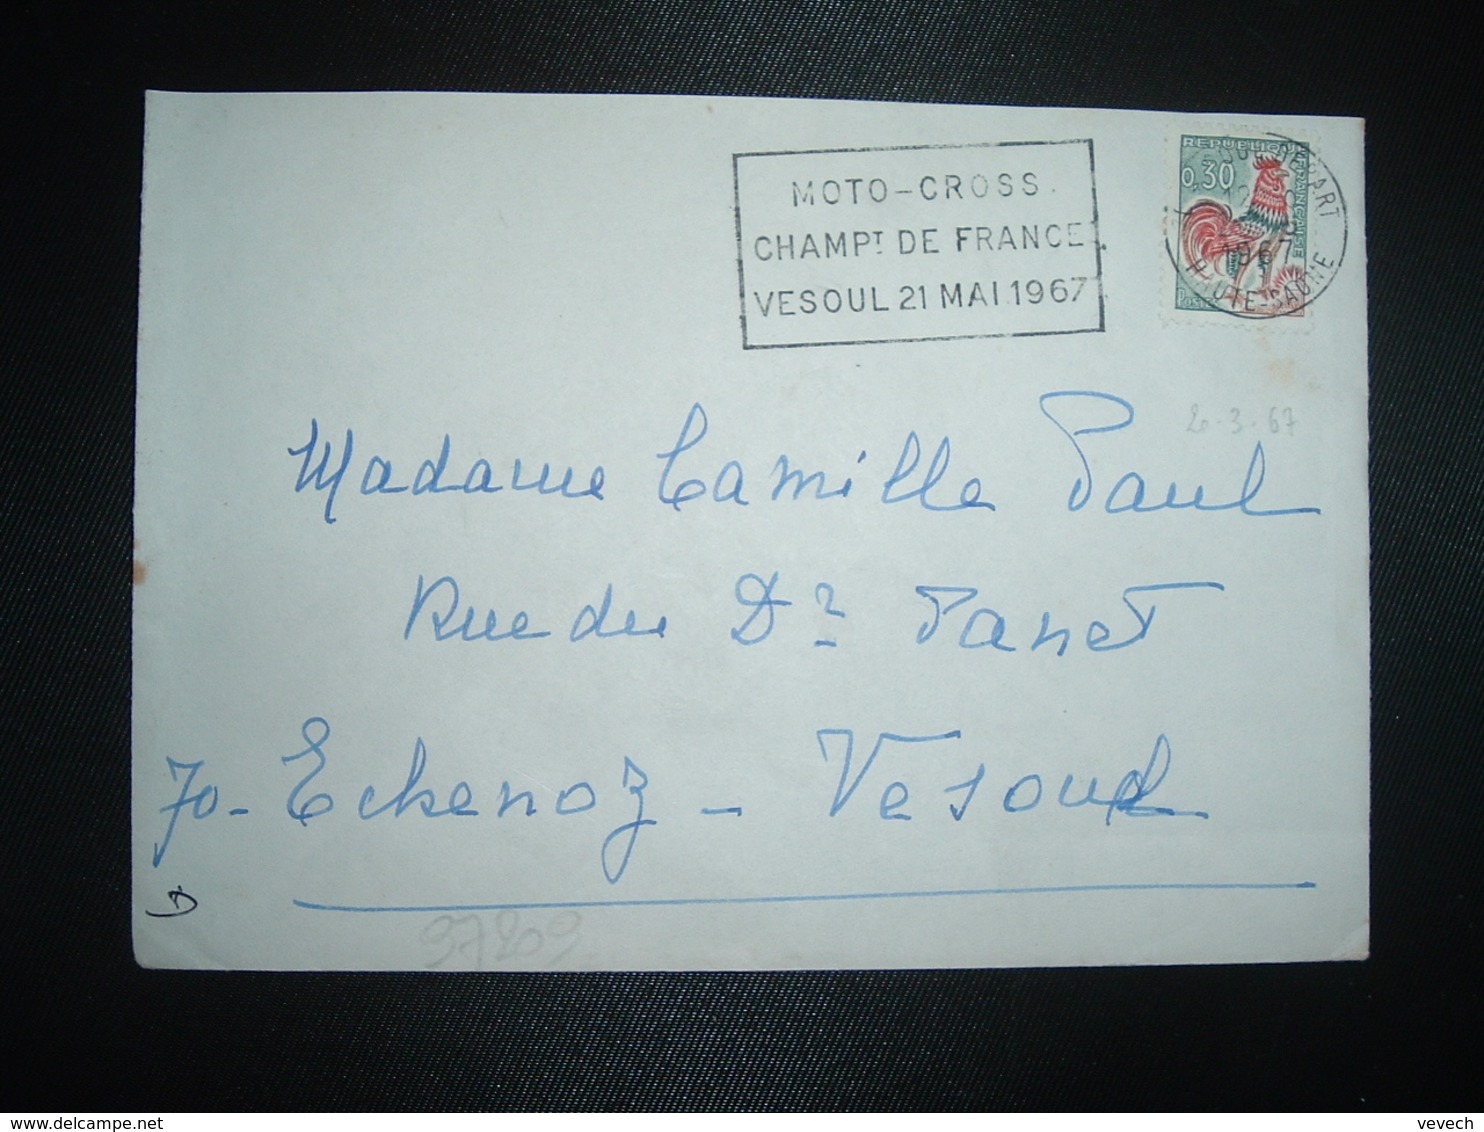 MOTO-CROSS
CHAMPT DE FRANCE
VESOUL 21 MAI 1967
REPUBLIQUE FRANÇAISE
0,30
DEPART
1967
HAUTE-SAONE
3.67
Madame Camille Paul
Rue du Dr Janet
70- Echenoz - Vesoul
37209
delcampe.net
vevech